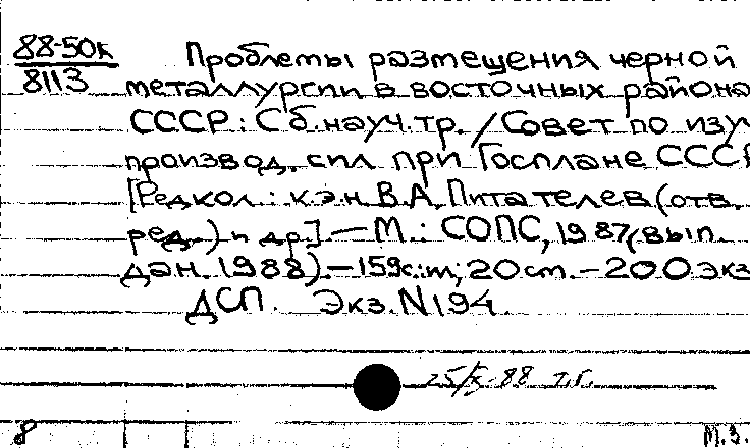 88-50к Проблемы размещения черной
8113 металлургии в восточных района
СССР: Сб. науч. тр. / Совет по изу
производ. сил при Госплане СССР
[Редкол.: к.э.н. В.А. Питателев (отв.
ред.) и др.]. — М.: СОПС, 1987 (вып.
дан. 1988). — 159с.: т; 20ст. — 200 экз
ДСП. Экз. N194.
25/X-88 т.г.
8 М.З.